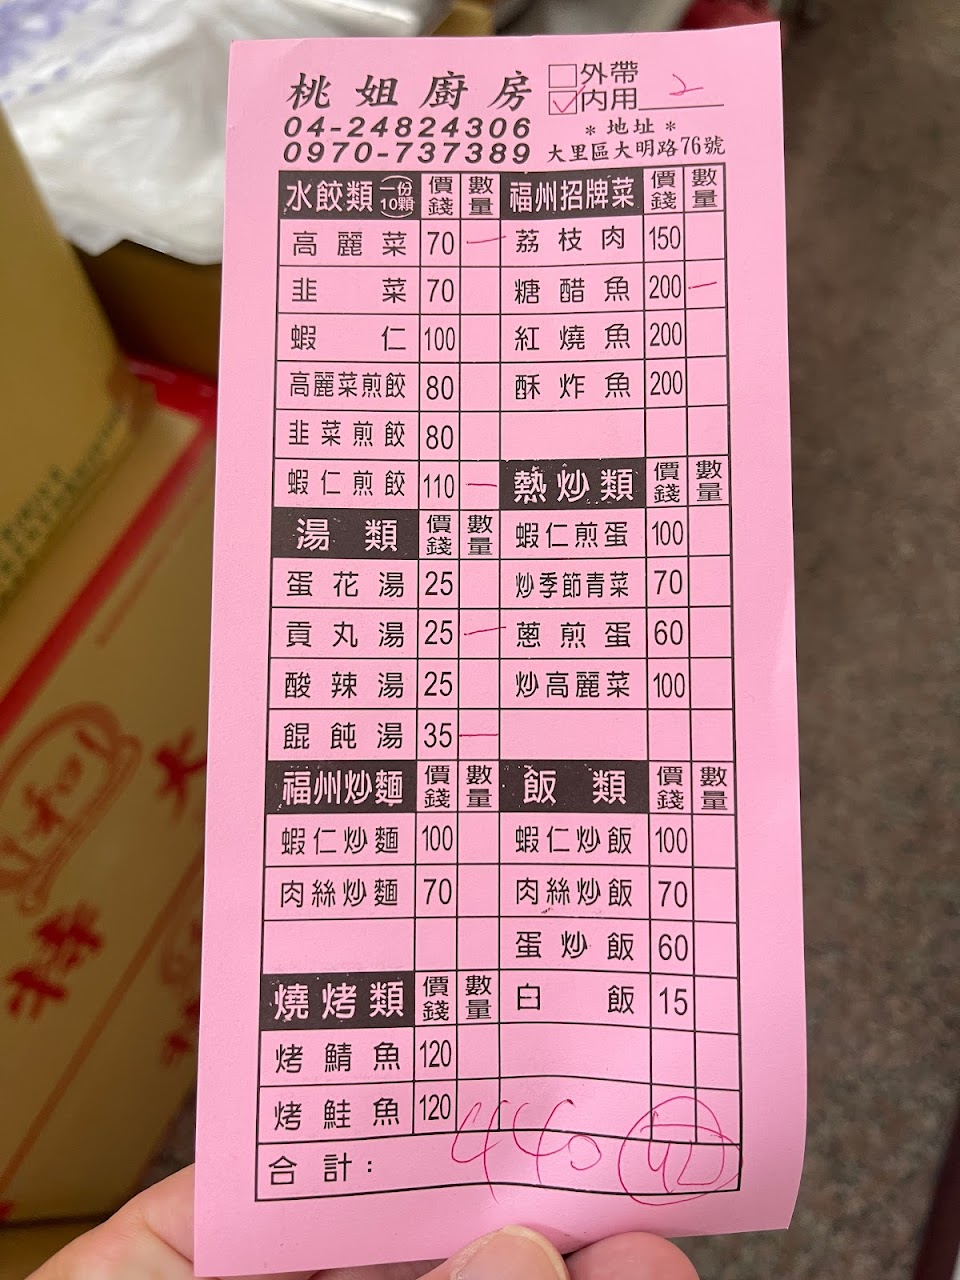 桃姐廚房
□外帶
☑內用 2
04-24824306
0970-737389
＊地址＊
大里區大明路76號
水餃類(一份10顆) 價錢 數量 福州招牌菜 價錢 數量
高麗菜 70 一 荔枝肉 150
韭菜 70 糖醋魚 200 一
蝦仁 100 紅燒魚 200
高麗菜煎餃 80 酥炸魚 200
韭菜煎餃 80
蝦仁煎餃 110 一 熱炒類 價錢 數量
湯類 價錢 數量 蝦仁煎蛋 100
蛋花湯 25 炒季節青菜 70
貢丸湯 25 一 蔥煎蛋 60
酸辣湯 25 炒高麗菜 100
餛飩湯 35 一
福州炒麵 價錢 數量 飯類 價錢 數量
蝦仁炒麵 100 蝦仁炒飯 100
肉絲炒麵 70 肉絲炒飯 70
蛋炒飯 60
燒烤類 價錢 數量 白飯 15
烤鯖魚 120
烤鮭魚 120
合計： 440